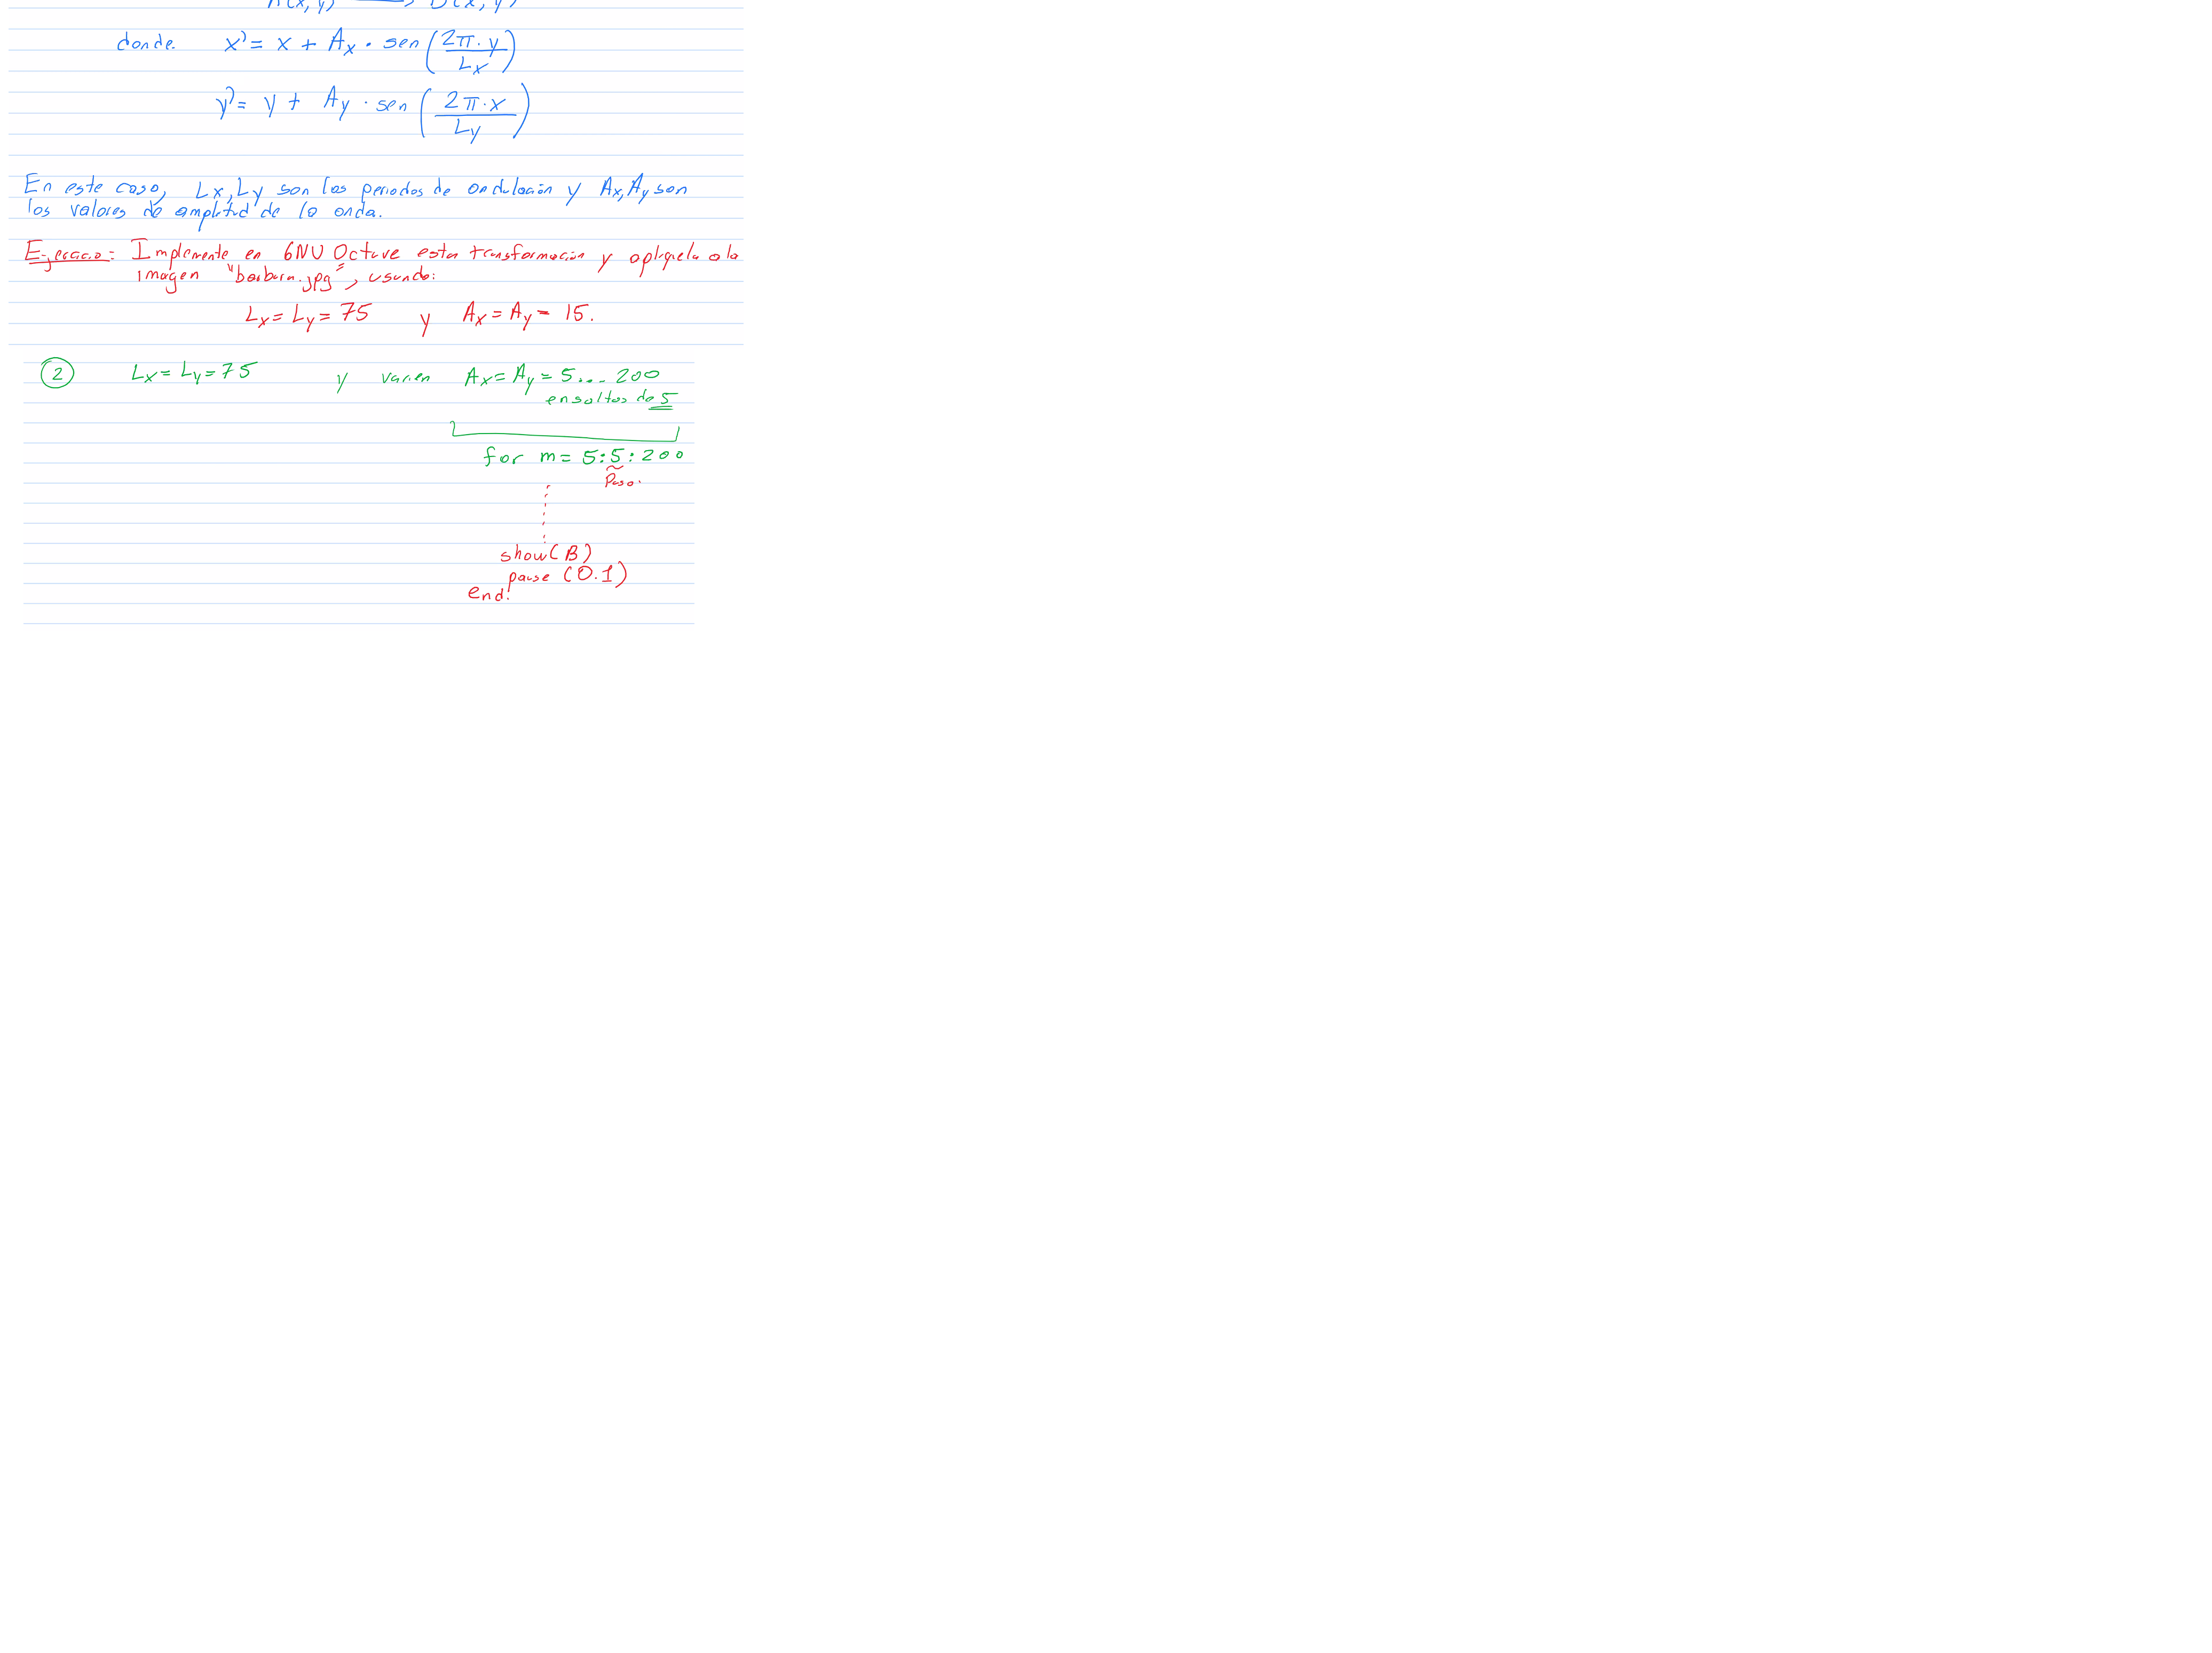 A(x, y) → B(x', y')
donde. x' = x + Ax · sen (2π·y / Lx)
y' = y + Ay · sen (2π·x / Ly)
En este caso, Lx, Ly son los periodos de ondulación y Ax, Ay son
los valores de amplitud de la onda.
Ejercicio: Implemente en GNU Octave esta transformación y aplíquela a la
imagen "barbara.jpg", usando:
Lx = Ly = 75 y Ax = Ay = 15.
② Lx = Ly = 75 y varien Ax = Ay = 5... 200
en saltos de 5
for m = 5:5:200
Paso.
show(B)
pause (0.1)
end.